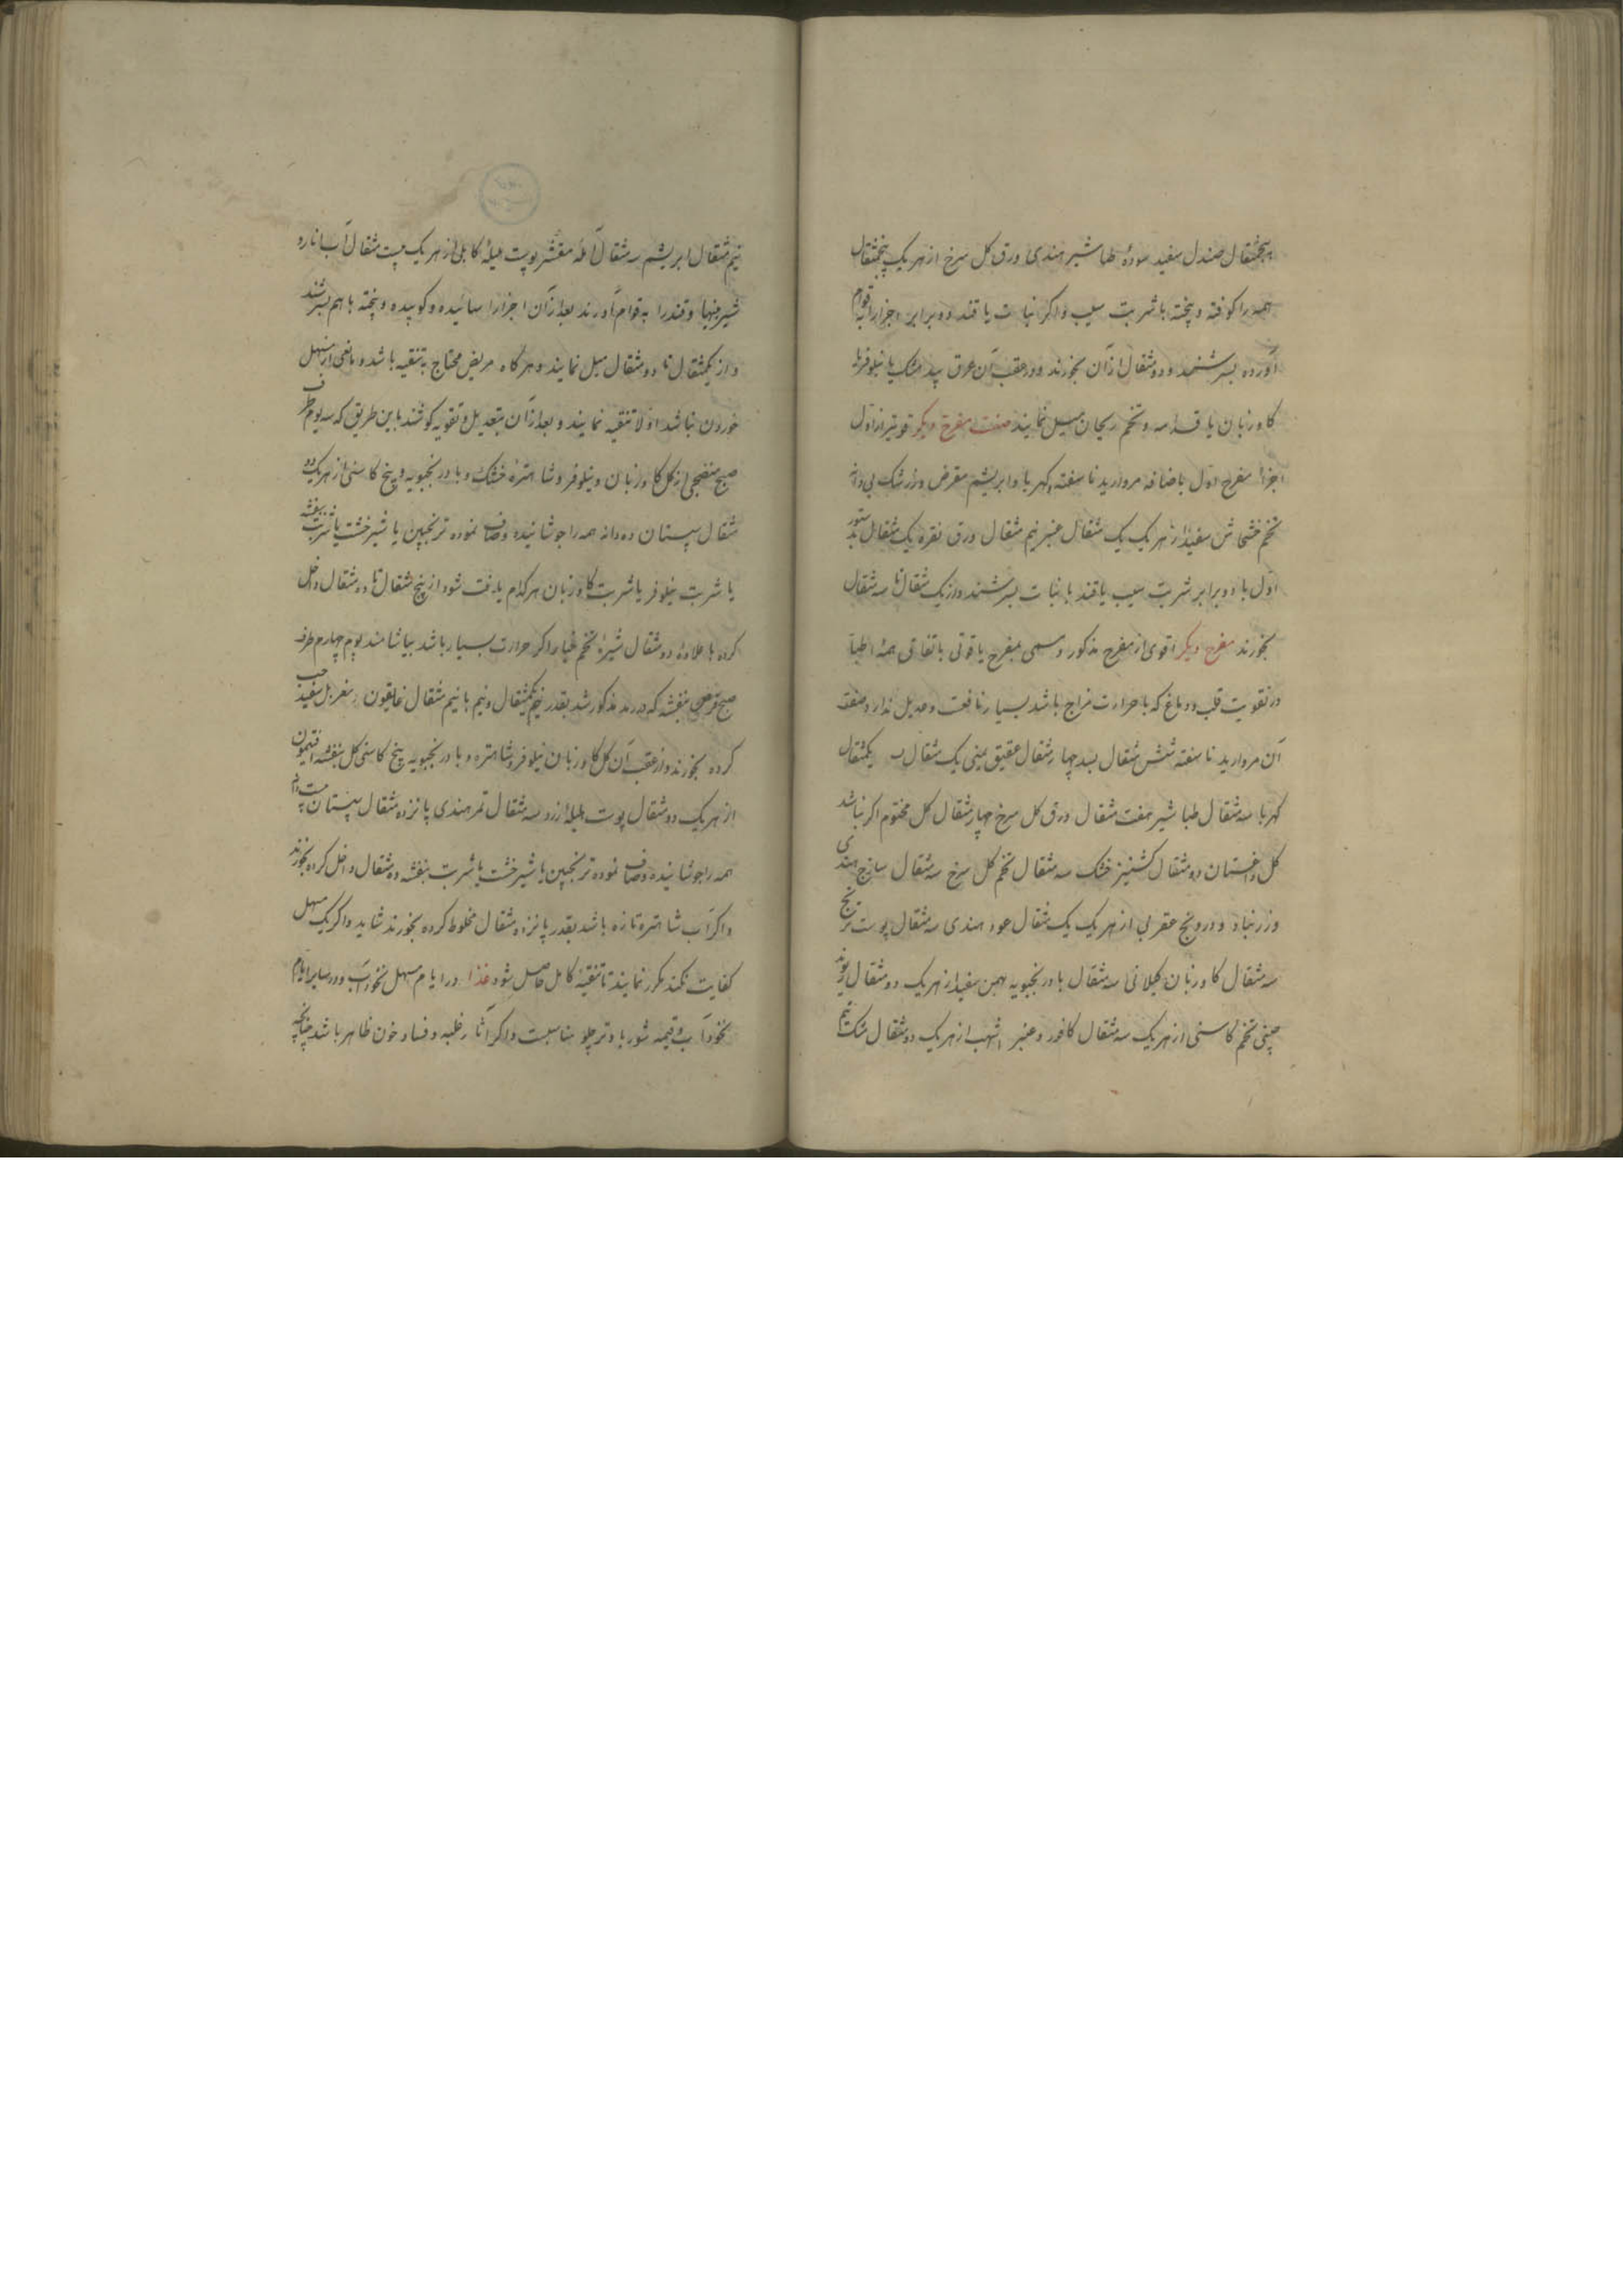 پنجمثقال صندل سفید سوده طباشیر هندی ورق کل سرخ از هر یک پنجمثقال
همه را کوفته و پخته با شربت سیب و اکر نبات یا قند دو برابر اجزا را بقوام
آورده بسرشند و دو مثقال از آن بخورند و در عقب آن عرق بید مشک یا نیلوفر یا
کاوزبان با و تخم ریحان میل نمایند صفت مفرح دیکر قویتر از اول
اجزا مفرح اول باضافه مروارید ناسفته کهربا و ابریشم مقرض و زرشک بی دانه
تخم خشخاش سفید از هر یک یک مثقال عنبر نیم مثقال ورق نقره یک مثقال بدستور
اول با دو برابر شربت سیب یا قند یا نبات بسرشند و از یک مثقال تا سه مثقال
بخورند مفرح دیکر اقوی از مفرح مذکور و مسمی بمفرح یاقوتی باتفاق همه اطبا
در تقویت قلب و دماغ که با حرارت مزاج باشد بسیار نافعست و عدیل ندارد صفت
آن مروارید ناسفته شش مثقال بسد چهار مثقال عقیق یمنی یک مثقال یکمثقال
کهربا سه مثقال طباشیر هفت مثقال ورق کل سرخ چهار مثقال کل مختوم اکر نباشد
کل داغستان دو مثقال کشنیز خشک سه مثقال تخم کل سرخ سه مثقال سازج هندی
و زرنباد و درونج عقربی از هر یک یک مثقال عود هندی سه مثقال پوست ترنج
سه مثقال کاوزبان کیلانی سه مثقال بادرنجبویه بهمن سفید از هر یک دو مثقال ریوند
چینی تخم کاسنی از هر یک سه مثقال کافور و عنبر اشهب از هر یک دو مثقال مشک نیم
نیم مثقال ابریشم سه مثقال آمله مقشر پوست هلیله کابلی از هر یک بیست مثقال آب انار و
شیرینیها و قند را به قوام آورند بعد از آن اجزا را سائیده و کوبیده و پخته با هم بسرشند
و از یکمثقال تا دو مثقال میل نمایند و هر کاه مریض محتاج به تنقیه باشد و مانعی از مسهل
خوردن نباشد اولا تنقیه نمایند و بعد از آن بتعدیل و تقویه کوشند باین طریق که سه یوم طرف
صبح منضجی از کل کاوزبان و نیلوفر و شاهتره خشک و بادرنجبویه و بیخ کاسنی از هر یک دو
مثقال سپستان ده دانه همه را جوشانیده و صاف نموده ترنجبین یا شیرخشت یا شربت بنفشه
یا شربت نیلوفر یا شربت کاوزبان هر کدام یافت شود از پنج مثقال تا ده مثقال داخل
کرده با علاوه دو مثقال شیره تخم خیار اکر حرارت بسیار باشد بیاشامند یوم چهارم طرف
صبح قرص بنفشه که در مذکور شد بقدر یکمثقال و نیم با نیم مثقال غاریقون مغربل سفید حب
کرده بخورند و از عقب آن کل کاوزبان نیلوفر و شاهتره و بادرنجبویه بیخ کاسنی کل بنفشه افتیمون
از هر یک دو مثقال پوست هلیله زرد سه مثقال تمر هندی پانزده مثقال سپستان بیست دانه
همه را جوشانیده و صاف نموده ترنجبین یا شیرخشت یا شربت بنفشه ده مثقال داخل کرده بخورند
و اکر آب شاهتره تازه باشد بقدر پانزده مثقال مخلوط کرده بخورند شاید و اکر یک مسهل
کفایت نکند مکرر نمایند تا تنقیه کامل حاصل شود غذا در ایام مسهل نخودآب و در سایر ایام
نخودآب و قیمه شوربا و تر چلو مناسبست و اکر آثار غلبه و فساد خون ظاهر باشد چنانچه